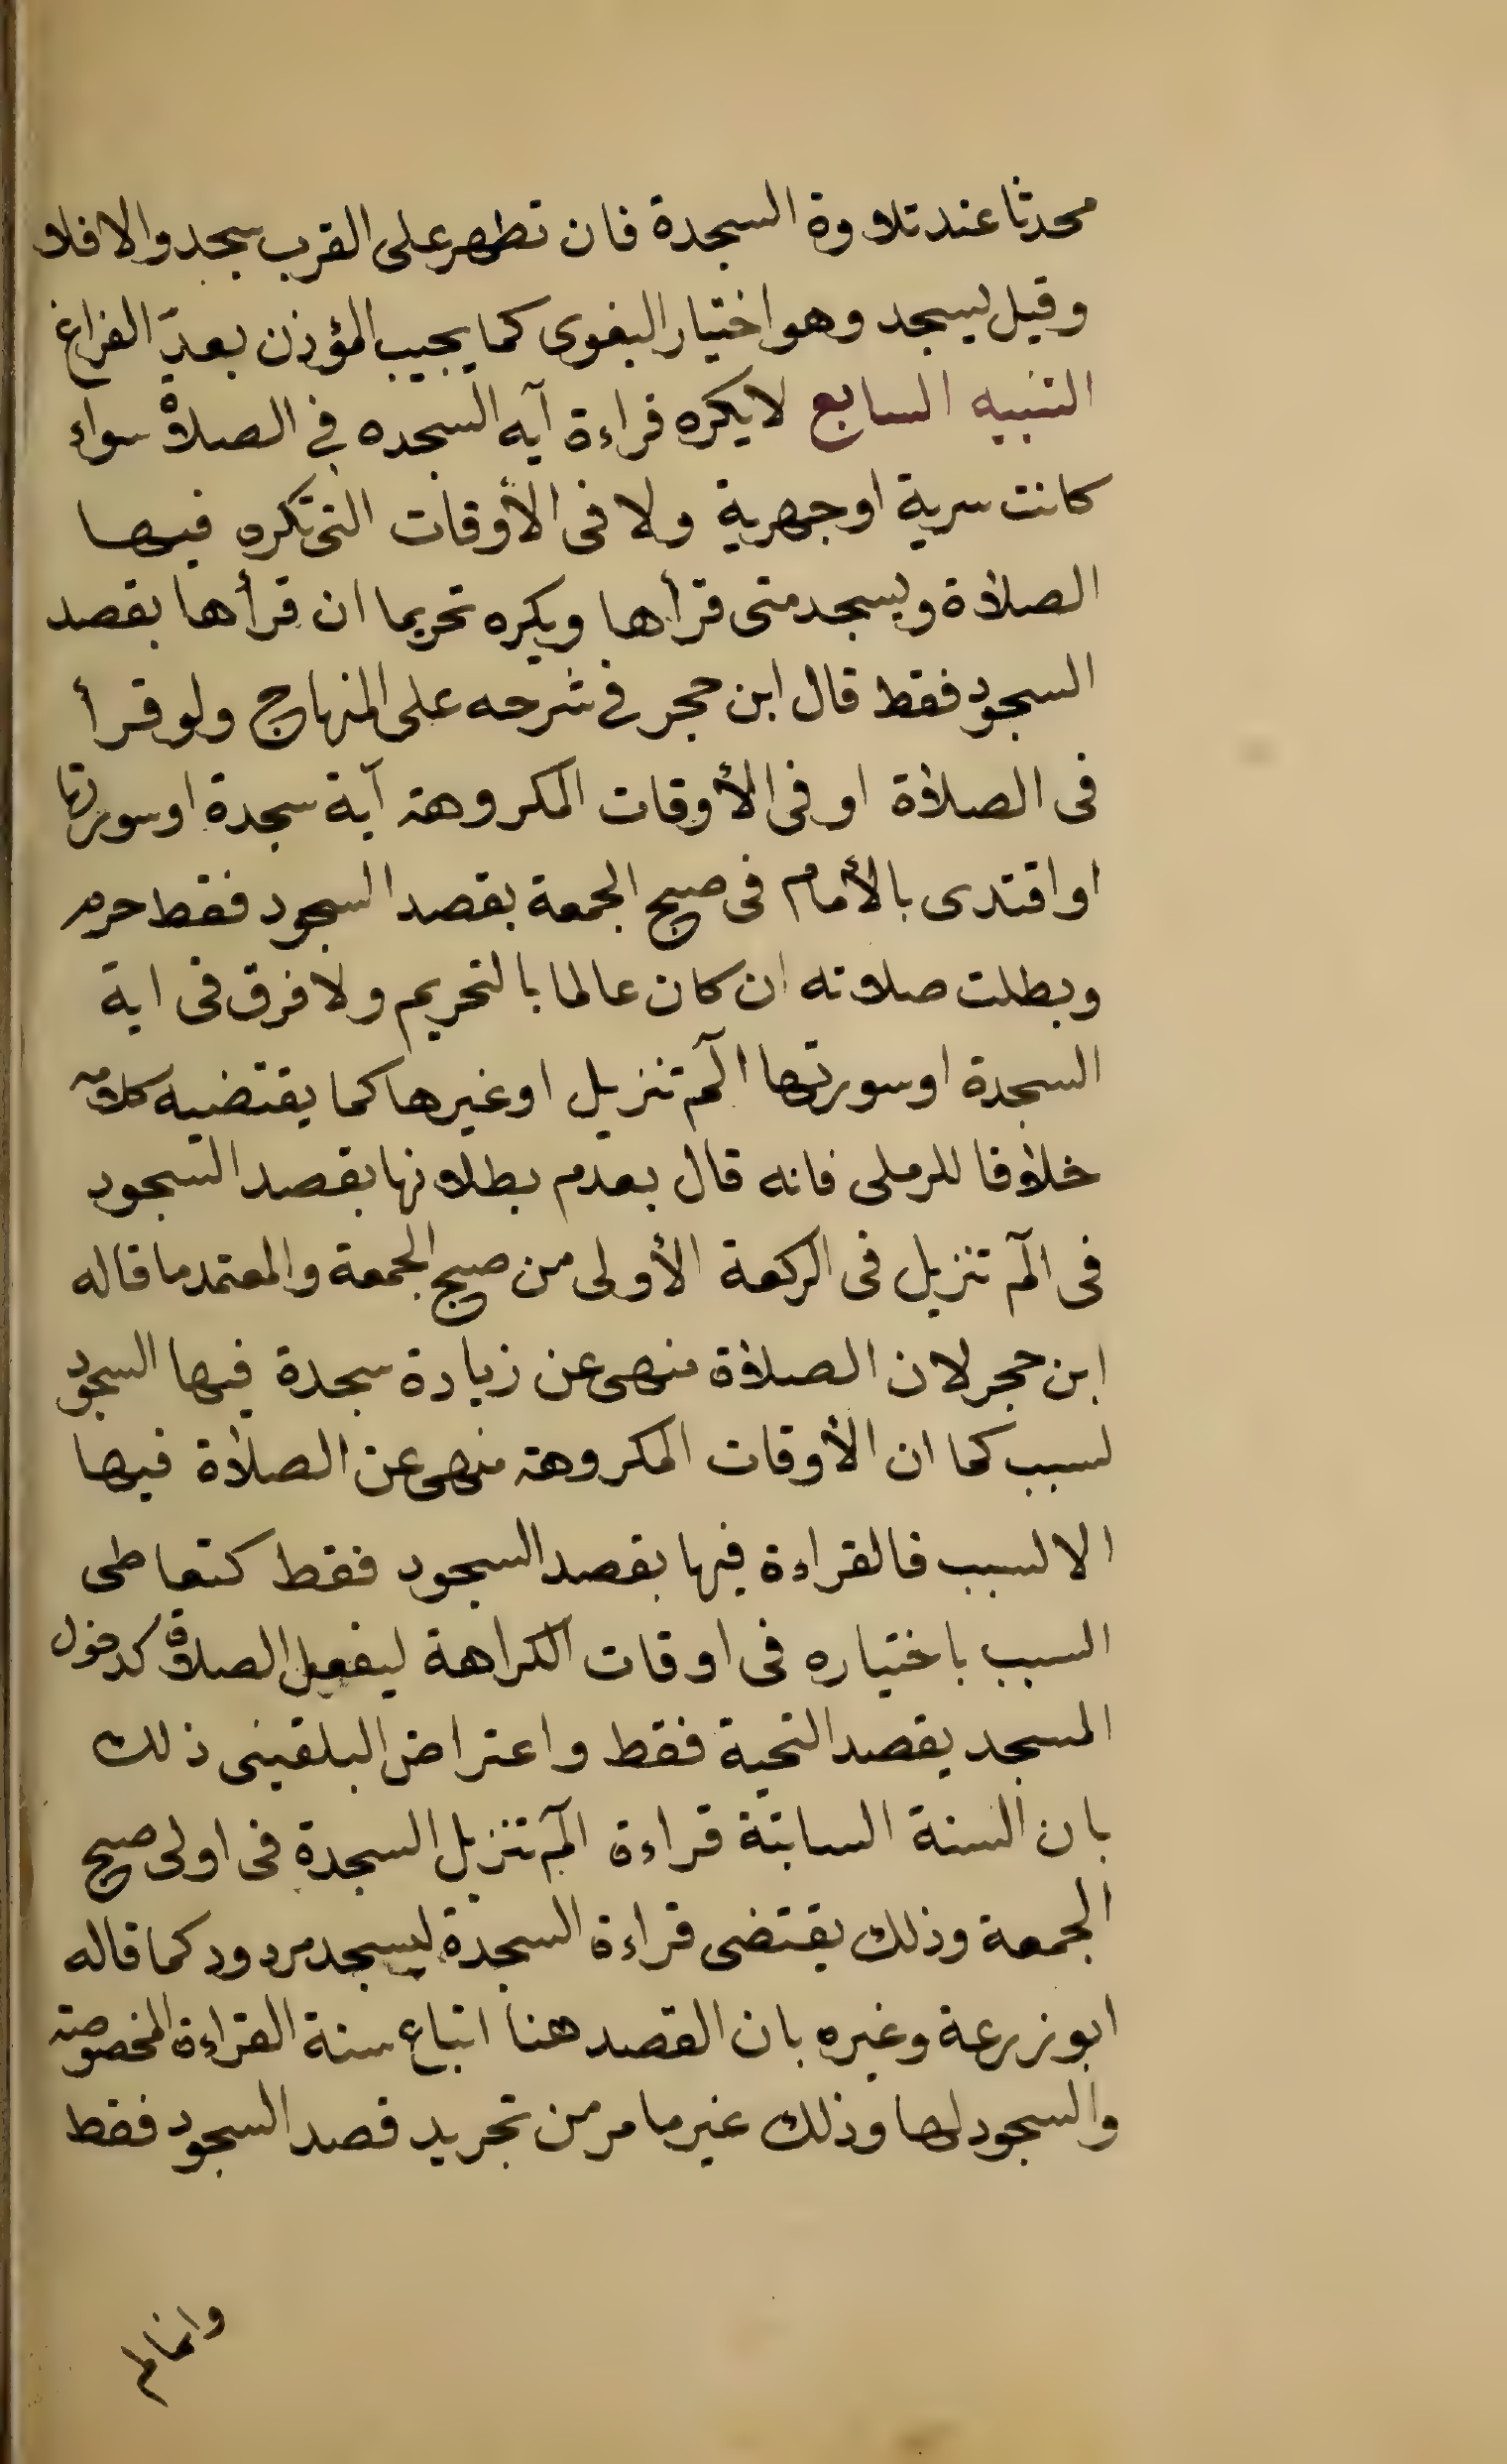 محدثا عند تلاوة السجدة فان تطهر على القرب سجد والا فلا
وقيل ليسجد وهو اختيار البغوى كما يجيب المؤذن بعد الفراغ
التنبيه السابع لا يكره قراءة آيه السجده في الصلاة سواء
كانت سرية او جهرية ولا فى الأوقات التى تكره فيها
الصلاة ويسجد متى قرأها ويكره تحريما ان قرأها بقصد
السجود فقط قال ابن حجر في شرحه على المنهاج ولو قرأ
فى الصلاة او فى الأوقات المكروهة آية سجدة او سورتها
او اقتدى بالأمام فى صبح الجمعة بقصد السجود فقط حرم
وبطلت صلاته ان كان عالما بالتحريم ولا فرق فى اية
السجدة او سورتها آلم تنزيل او غيرها كما يقتضيه كلامه
خلافا للرملى فانه قال بعدم بطلانها بقصد السجود
فى آلم تنزيل فى الركعة الأولى من صبح الجمعة والمعتمد ما قاله
ابن حجر لان الصلاة منهى عن زيادة سجدة فيها السجود
لسبب كما ان الأوقات المكروهة منهى عن الصلاة فيها
الا لسبب فالقراءة فيها بقصد السجود فقط كتعاطى
السبب باختياره فى اوقات الكراهة ليفعل الصلاة كدخول
المسجد بقصد التحية فقط واعتراض البلقينى ذلك
بان السنة السابتة قراءة آلم تنزيل السجدة فى اولى صبح
الجمعة وذلك يقتضى قراءة السجدة ليسجد مردود كما قاله
ابو زرعة وغيره بان القصد هنا اتباع سنة القراءة المخصوصة
والسجود لها وذلك غير ما مر من تجريد قصد السجود فقط
وانما لم